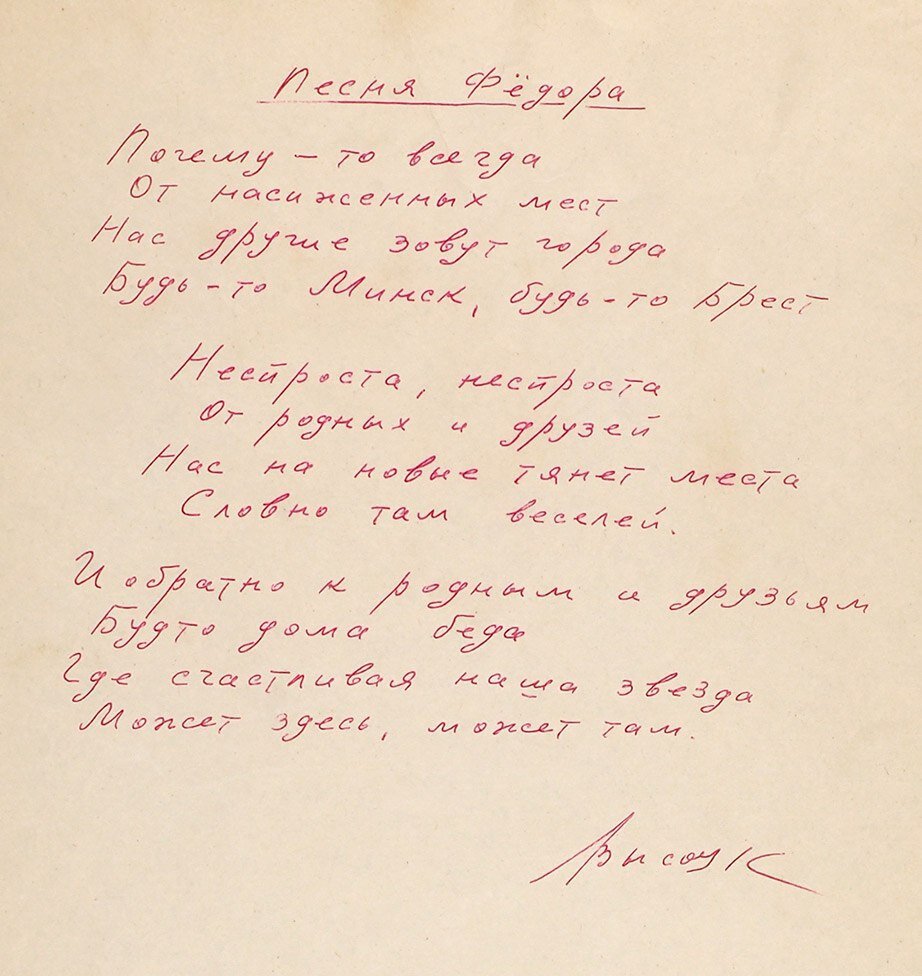 Песня Фёдора
Почему-то всегда
От насиженных мест
Нас другие зовут города
Будь-то Минск, будь-то Брест
Неспроста, неспроста
От родных и друзей
Нас на новые тянет места
Словно там веселей.
И обратно к родным и друзьям
Будто дома беда
Где счастливая наша звезда
Может здесь, может там.
Высоцк